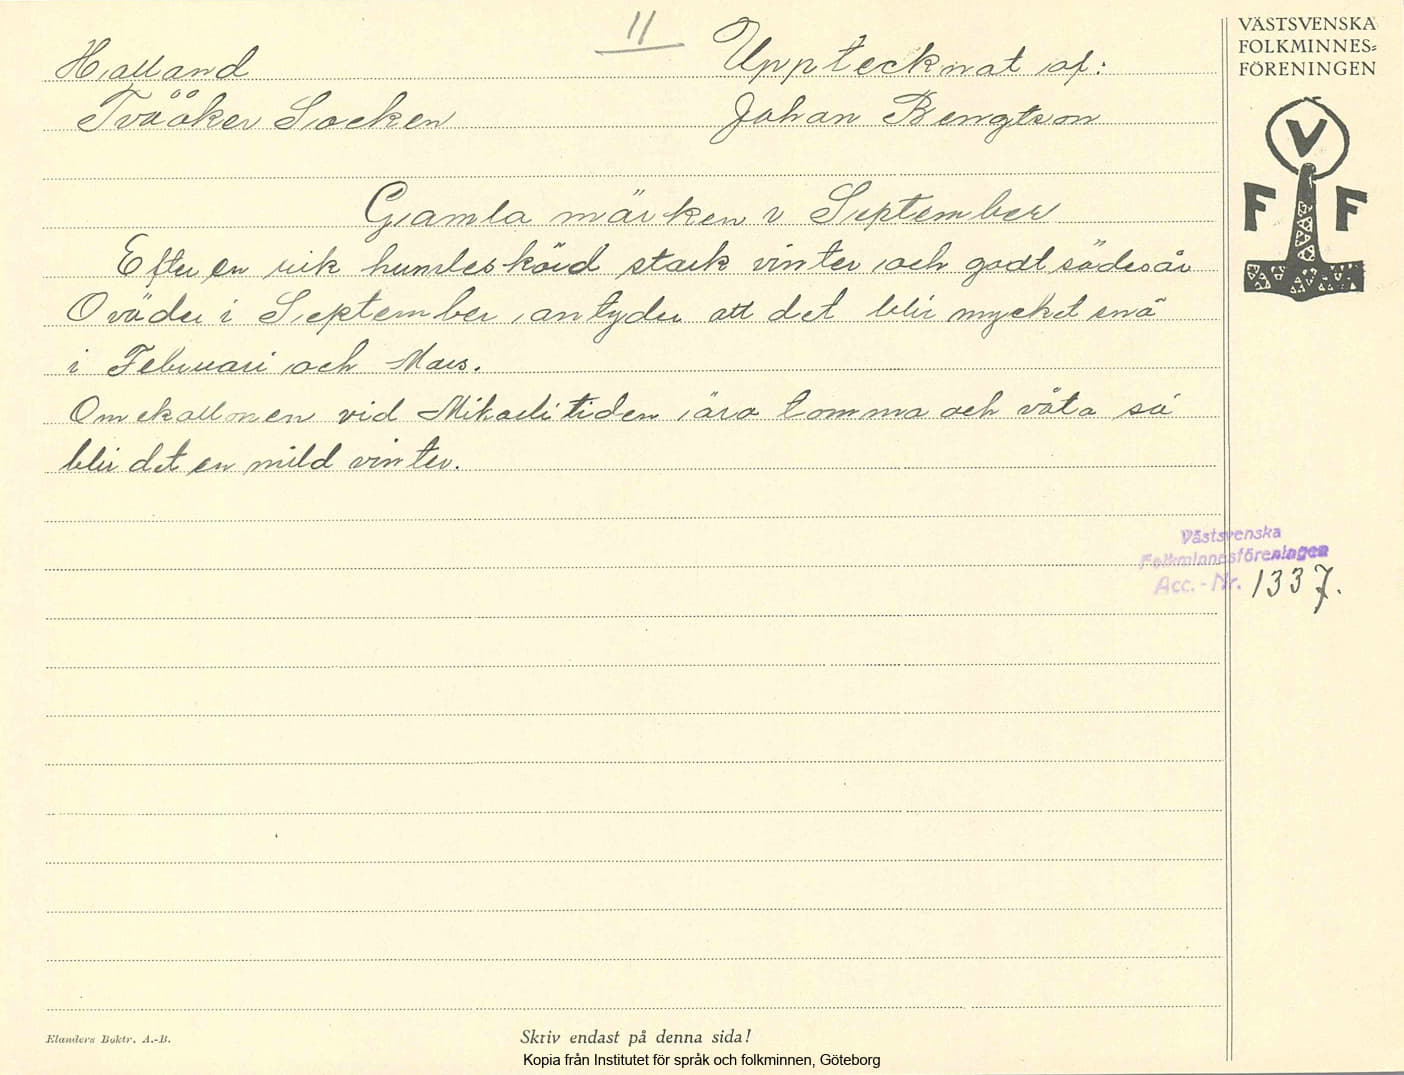 11
Halland
Tvååker Socken
Upptecknat af:
Johan Bengtson
Gamla märken i September
Efter en rik humleskörd stark vinter och godt södesår
Oväder i September antyder att det blir mycket snö
i Februari och Mars.
Om ekollonen vid Mikaelitiden äro tomma och våta så
blir det en mild vinter.
VÄSTSVENSKA
FOLKMINNES=
FÖRENINGEN
V
F F
Västsvenska
Folkminnesföreningen
Acc.-Nr. 1337.
Elanders Boktr. A.-B.
Skriv endast på denna sida!
Kopia från Institutet för språk och folkminnen, Göteborg